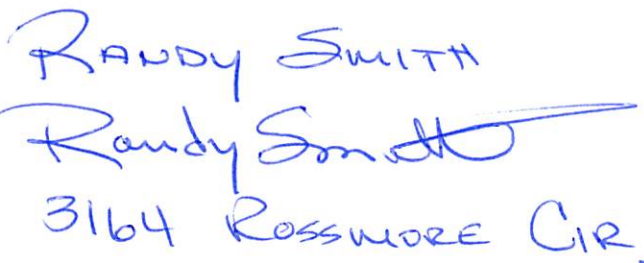 RANDY SMITH
Randy Smith
3164 ROSSMORE CIR.